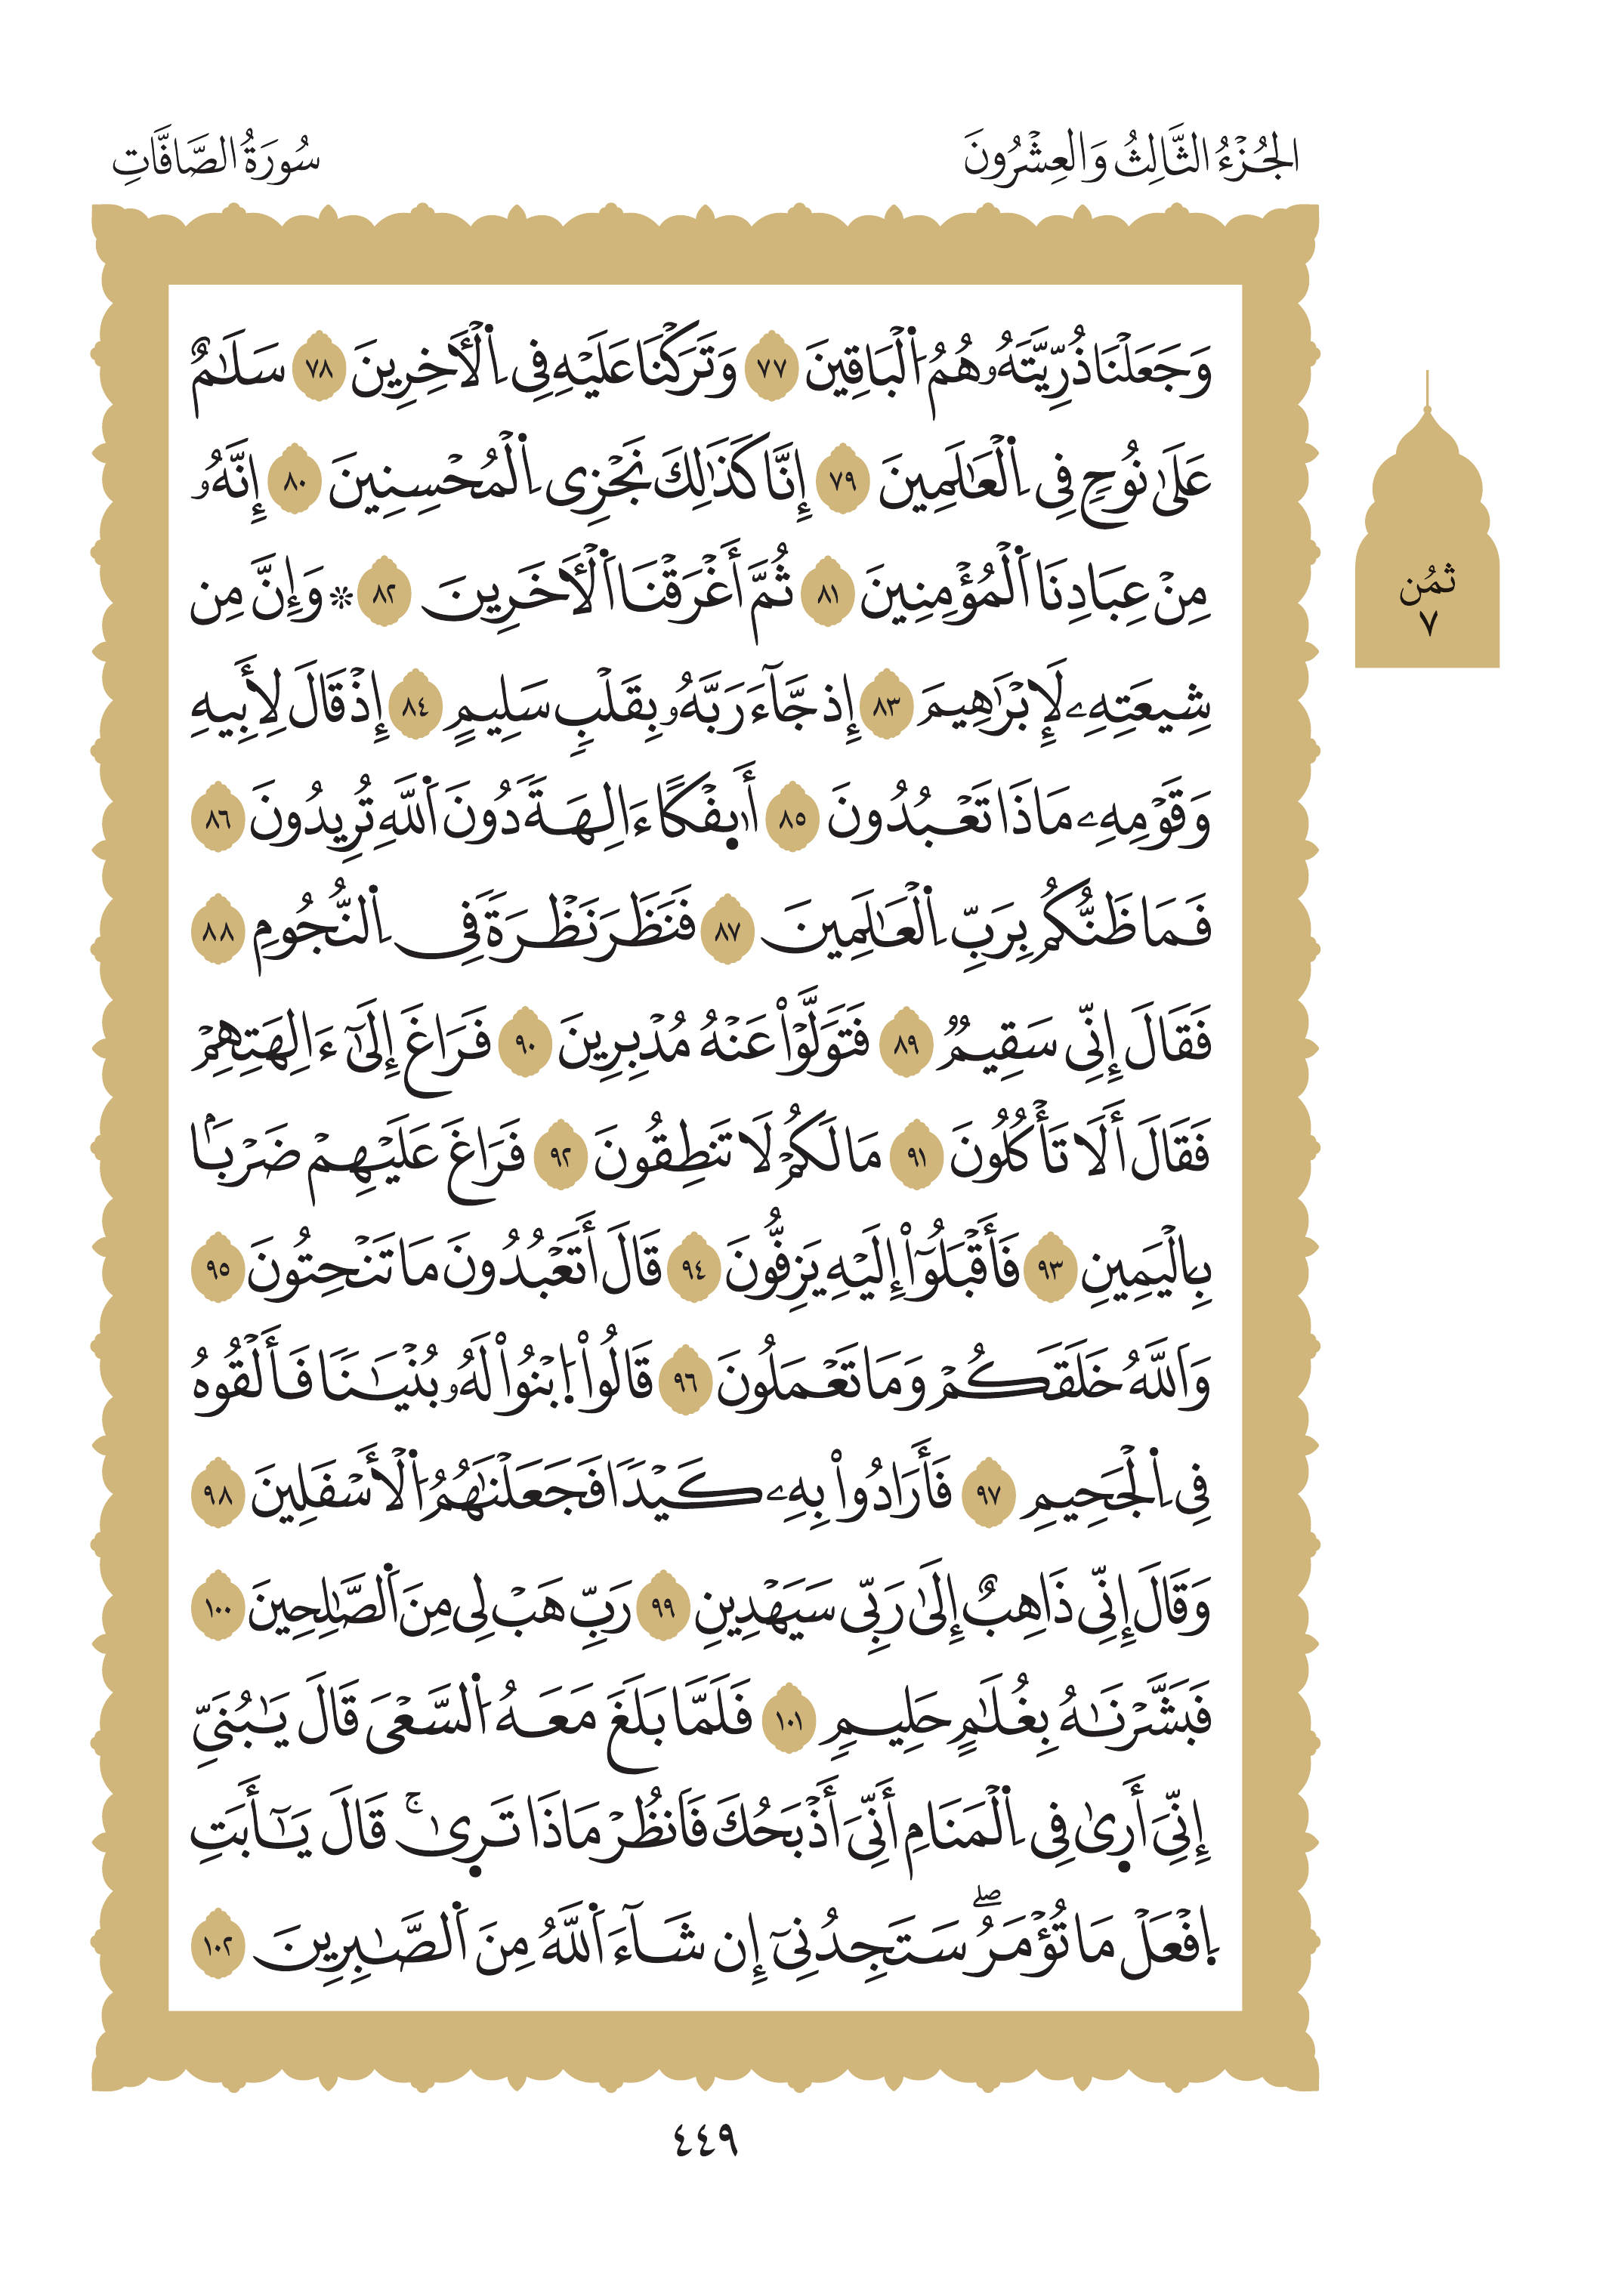 الجُزْءُ الثَّالِثُ وَالعِشْرُونَ
سُورَةُ الصَّافَّاتِ
وَجَعَلْنَا ذُرِّيَّتَهُۥ هُمُ اُ۬لْبَاقِينَ ٧٧ وَتَرَكْنَا عَلَيْهِ فِي اِ۬لْأٓخِرِينَ ٧٨ سَلَٰمٌ
عَلَىٰ نُوحٖ فِي اِ۬لْعَٰلَمِينَ ٧٩ إِنَّا كَذَٰلِكَ نَجْزِي اِ۬لْمُحْسِنِينَ ٨٠ إِنَّهُۥ
مِنْ عِبَادِنَا اَ۬لْمُؤْمِنِينَ ٨١ ثُمَّ أَغْرَقْنَا اَ۬لْأٓخَرِينَ ٨٢ ۞ وَإِنَّ مِن
شِيعَتِهِۦ لَإِبْرَٰهِيمَ ٨٣ إِذ جَّآءَ رَبَّهُۥ بِقَلْبٖ سَلِيمٍ ٨٤ إِذْ قَالَ لِأَبِيهِ
وَقَوْمِهِۦ مَاذَا تَعْبُدُونَ ٨٥ أَى۪فْكًا ءَالِهَةٗ دُونَ اَ۬للَّهِ تُرِيدُونَ ٨٦
فَمَا ظَنُّكُم بِرَبِّ اِ۬لْعَٰلَمِينَ ٨٧ فَنَظَرَ نَظْرَةٗ فِي اِ۬لنُّجُومِ ٨٨
فَقَالَ إِنِّي سَقِيمٞ ٨٩ فَتَوَلَّوْاْ عَنْهُ مُدْبِرِينَ ٩٠ فَرَاغَ إِلَىٰٓ ءَالِهَتِهِمْ
فَقَالَ أَلَا تَأْكُلُونَ ٩١ مَا لَكُمْ لَا تَنطِقُونَ ٩٢ فَرَاغَ عَلَيْهِمْ ضَرْبَۢا
بِالْيَمِينِ ٩٣ فَأَقْبَلُوٓاْ إِلَيْهِ يَزِفُّونَ ٩٤ قَالَ أَتَعْبُدُونَ مَا تَنْحِتُونَ ٩٥
وَاَللَّهُ خَلَقَكُمْ وَمَا تَعْمَلُونَ ٩٦ قَالُواْ اُ۪بْنُواْ لَهُۥ بُنْيَٰنٗا فَأَلْقُوهُ
فِي اِ۬لْجَحِيمِ ٩٧ فَأَرَادُواْ بِهِۦ كَيْدٗا فَجَعَلْنَٰهُمُ اُ۬لْأَسْفَلِينَ ٩٨
وَقَالَ إِنِّي ذَاهِبٌ إِلَىٰ رَبِّي سَيَهْدِينِ ٩٩ رَبِّ هَبْ لِي مِنَ اَ۬لصَّٰلِحِينَ ١٠٠
فَبَشَّرْنَٰهُ بِغُلَٰمٍ حَلِيمٖ ١٠١ فَلَمَّا بَلَغَ مَعَهُ اُ۬لسَّعْيَ قَالَ يَٰبُنَيِّ
إِنِّيَ أَر۪ىٰ فِي اِ۬لْمَنَامِ أَنِّيَ أَذْبَحُكَ فَانظُرْ مَاذَا تَر۪ىٰۚ قَالَ يَٰٓأَبَتِ
اِ۪فْعَلْ مَا تُؤْمَرُۖ سَتَجِدُنِيٓ إِن شَآءَ اَ۬للَّهُ مِنَ اَ۬لصَّٰبِرِينَ ١٠٢
ثُمُن
٧
٤٤٩